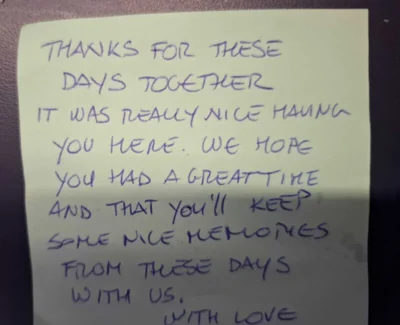 THANKS FOR THESE
DAYS TOGETHER
IT WAS REALLY NICE HAVING
YOU HERE. WE HOPE
YOU HAD A GREAT TIME
AND THAT YOU'll KEEP
SOME NICE MEMORIES
FROM THESE DAYS
WITH US.
WITH LOVE